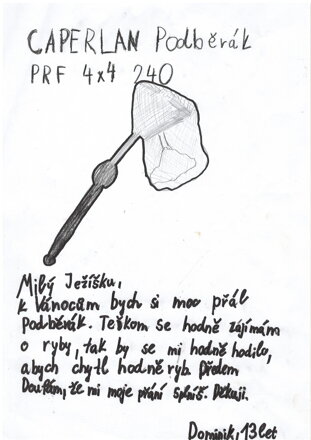 CAPERLAN Podběrák
PRF 4x4 240
Milý Ježíšku,
k Vánocům bych si moc přál
Podběrák. Teškom se hodně zajímám
o ryby, tak by se mi hodně hodilo,
abych chytl hodně ryb. Předem
Doufám, že mi moje přání splníš. Děkuji.
Dominik, 13 let